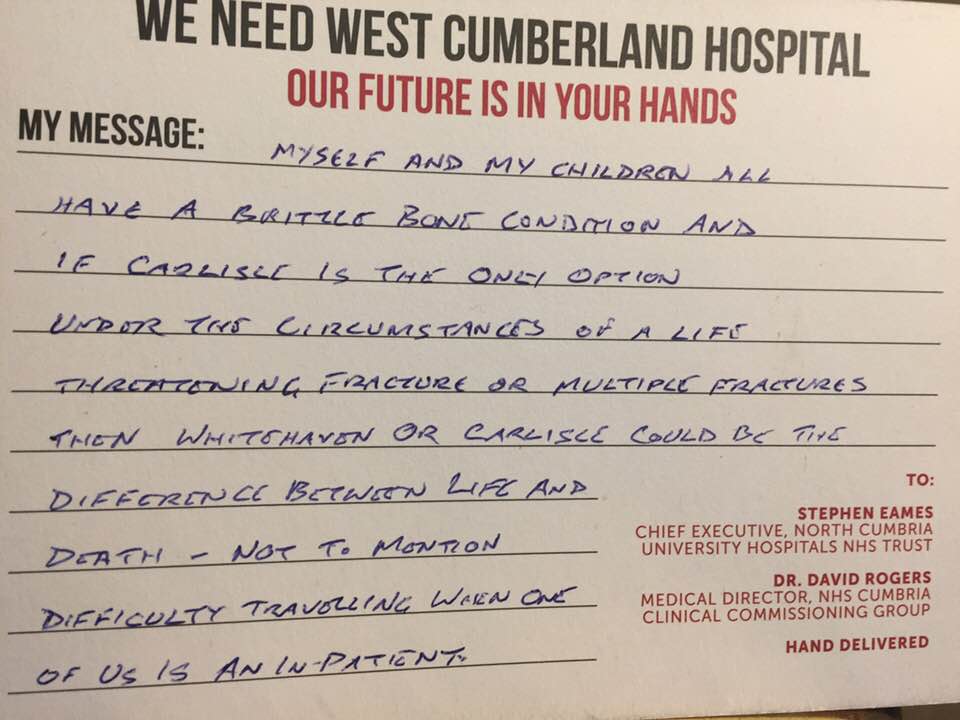 WE NEED WEST CUMBERLAND HOSPITAL
OUR FUTURE IS IN YOUR HANDS
MY MESSAGE:
MYSELF AND MY CHILDREN ALL
HAVE A BRITTLE BONE CONDITION AND
IF CARLISLE IS THE ONLY OPTION
UNDER THE CIRCUMSTANCES OF A LIFE
THREATENING FRACTURE OR MULTIPLE FRACTURES
THEN WHITEHAVEN OR CARLISLE COULD BE THE
DIFFERENCE BETWEEN LIFE AND
DEATH - NOT TO MENTION
DIFFICULTY TRAVELLING WHEN ONE
OF US IS AN IN-PATIENT.
TO:
STEPHEN EAMES
CHIEF EXECUTIVE, NORTH CUMBRIA
UNIVERSITY HOSPITALS NHS TRUST
DR. DAVID ROGERS
MEDICAL DIRECTOR, NHS CUMBRIA
CLINICAL COMMISSIONING GROUP
HAND DELIVERED